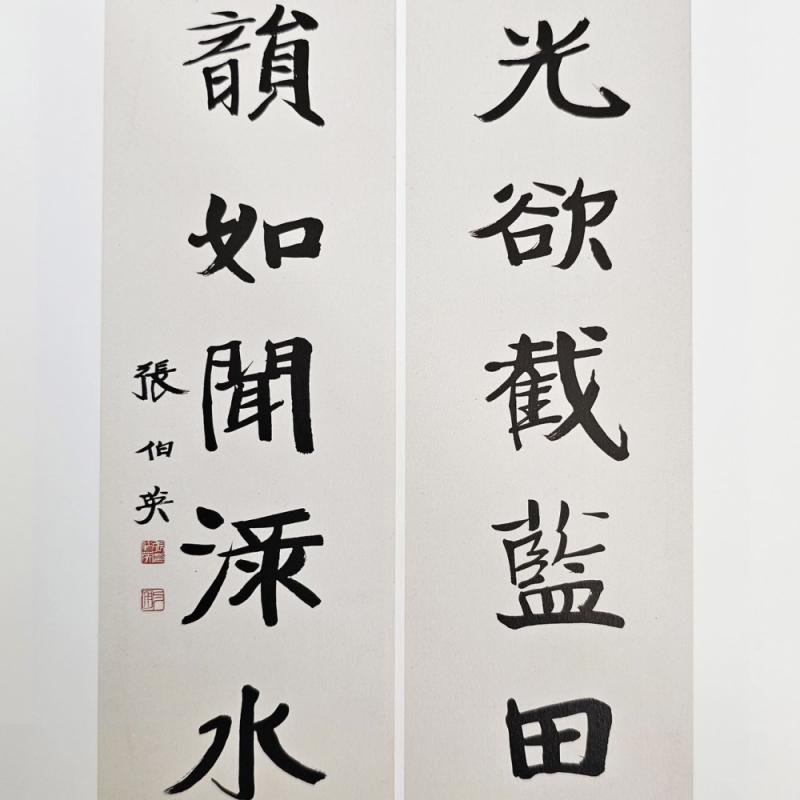 光欲截藍田
韻如聞渌水
張伯英